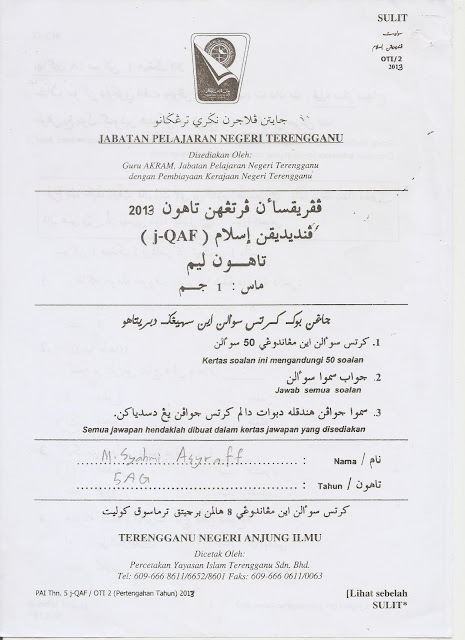 SULIT
سوليت
ڤنديديقن إسلام
OTI/2
2013
جابتن ڤلاجرن نڬري ترڠڬانو
JABATAN PELAJARAN NEGERI TERENGGANU
Disediakan Oleh:
Guru AKRAM, Jabatan Pelajaran Negeri Terengganu
dengan Pembiayaan Kerajaan Negeri Terengganu
ڤڤريقساٴن ڤرتڠهن تاهون 2013
ڤنديديقن إسلام ( j-QAF )
تاهــون ليم
ماس : 1 جــم
جاڠن بوك كرتس سوٴالن اين سهيڠڬ دبريتاهو
1. كرتس سوٴالن اين مڠاندوڠي 50 سوٴالن
Kertas soalan ini mengandungi 50 soalan
2. جواب سموا سوٴالن
Jawab semua soalan
3. سموا جواڤن هندقله دبوات دالم كرتس جواڤن يڠ دسدياكن.
Semua jawapan hendaklah dibuat dalam kertas jawapan yang disediakan
نام / Nama : M. Syahmi Asyraff
تاهون / Tahun : 5AG
كرتس سوٴالن اين مڠاندوڠي 8 هلامن برچيتق ترماسوق كوليت
TERENGGANU NEGERI ANJUNG ILMU
Dicetak Oleh:
Percetakan Yayasan Islam Terengganu Sdn. Bhd.
Tel: 609-666 8611/6652/8601 Faks: 609-666 0611/0063
PAI Thn. 5 j-QAF / OTI 2 (Pertengahan Tahun) 2013
[Lihat sebelah
SULIT*